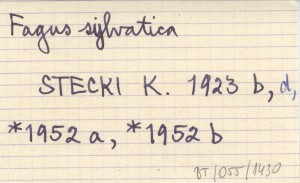 Fagus sylvatica
STECKI K. 1923 b, d,
*1952 a, *1952 b
BT/055/1430